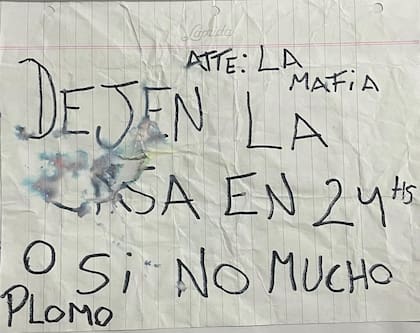 Lapida
ATTE: LA
MAFiA
DEJEN LA
CASA EN 24 HS
O Si NO MUCHO
PLOMO